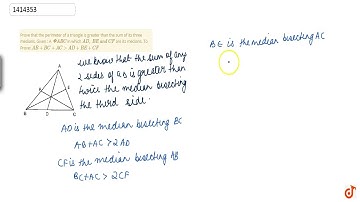 1414353
Prove that the perimeter of a triangle is greater than the sum of its three
medians. Given : A ΔABC in which AD, BE and CF are its medians. To
Prove: AB + BC + AC > AD + BE + CF
we know that the sum of any
2 sides of a Δ is greater then
twice the median bisecting
the third side.
A
F
E
B
D
C
AD is the median bisecting BC
AB+AC>2AD
CF is the median bisecting AB
BC+AC >2CF
BE is the median bisecting AC